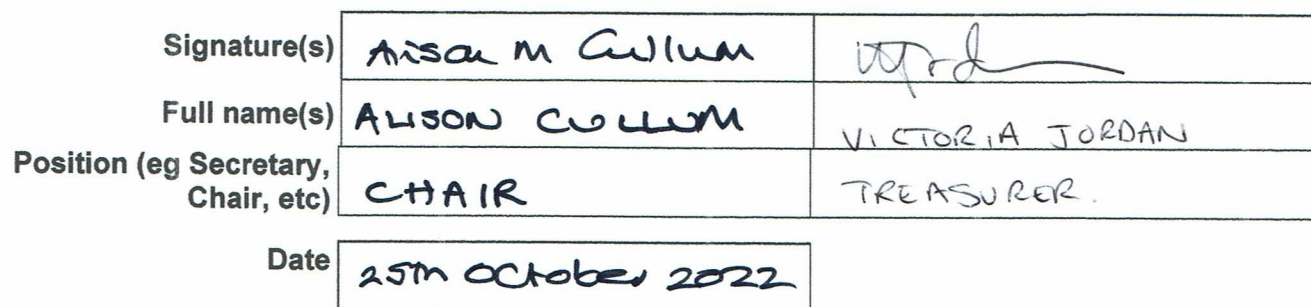 Signature(s) Alison M Cullum
Full name(s) ALISON CULLUM VICTORIA JORDAN
Position (eg Secretary,
Chair, etc) CHAIR TREASURER.
Date 25th October 2022